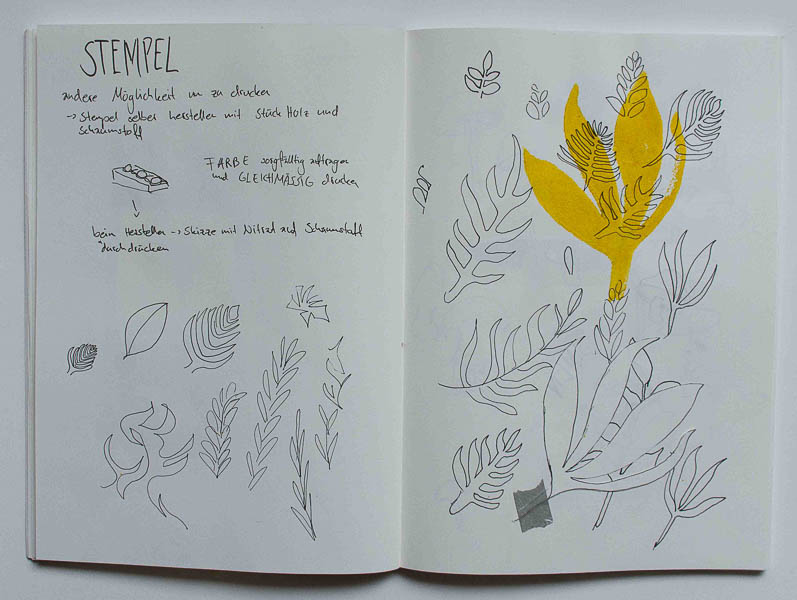 STEMPEL
andere Möglichkeit um zu drucken
→ Stempel selber herstellen mit Stück Holz und
Schaumstoff
FARBE sorgfältig auftragen
und GLEICHMÄSSIG drucken
beim Herstellen → Skizze mit Nitrad auf Schaumstoff
durchdrücken